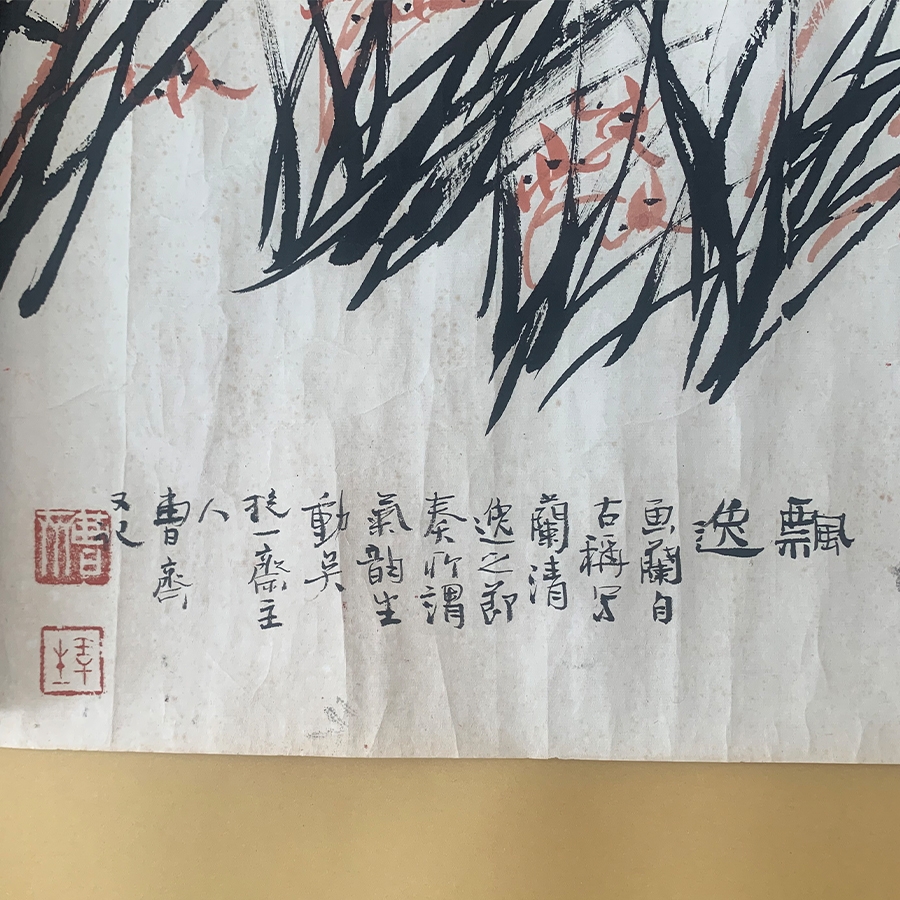 飄
逸
画蘭自
古稱写
蘭清
逸之節
奏所謂
氣韵生
動矣
一齋主
人
曹齊